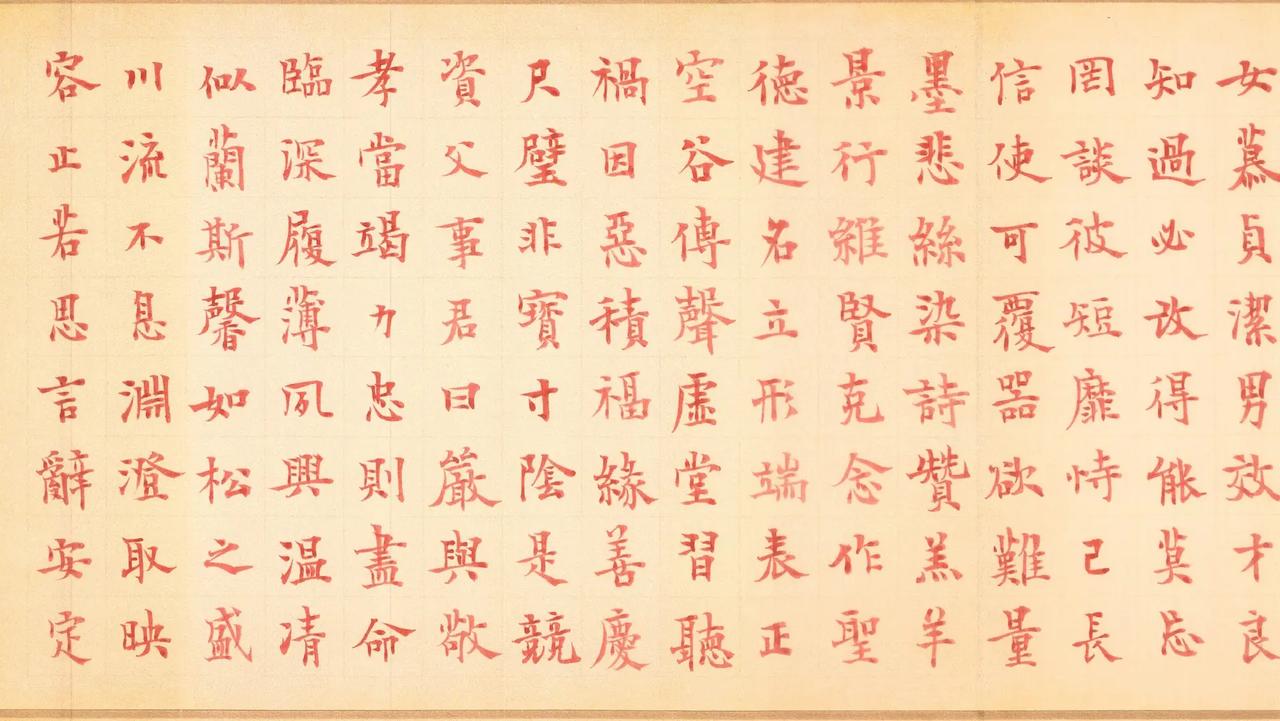 女慕貞潔男效才良
知過必改得能莫忘
罔談彼短靡恃己長
信使可覆器欲難量
墨悲絲染詩贊羔羊
景行維賢克念作聖
德建名立形端表正
空谷傳聲虛堂習聽
禍因惡積福緣善慶
尺璧非寶寸陰是競
資父事君曰嚴與敬
孝當竭力忠則盡命
臨深履薄夙興温凊
似蘭斯馨如松之盛
川流不息淵澄取映
容止若思言辭安定